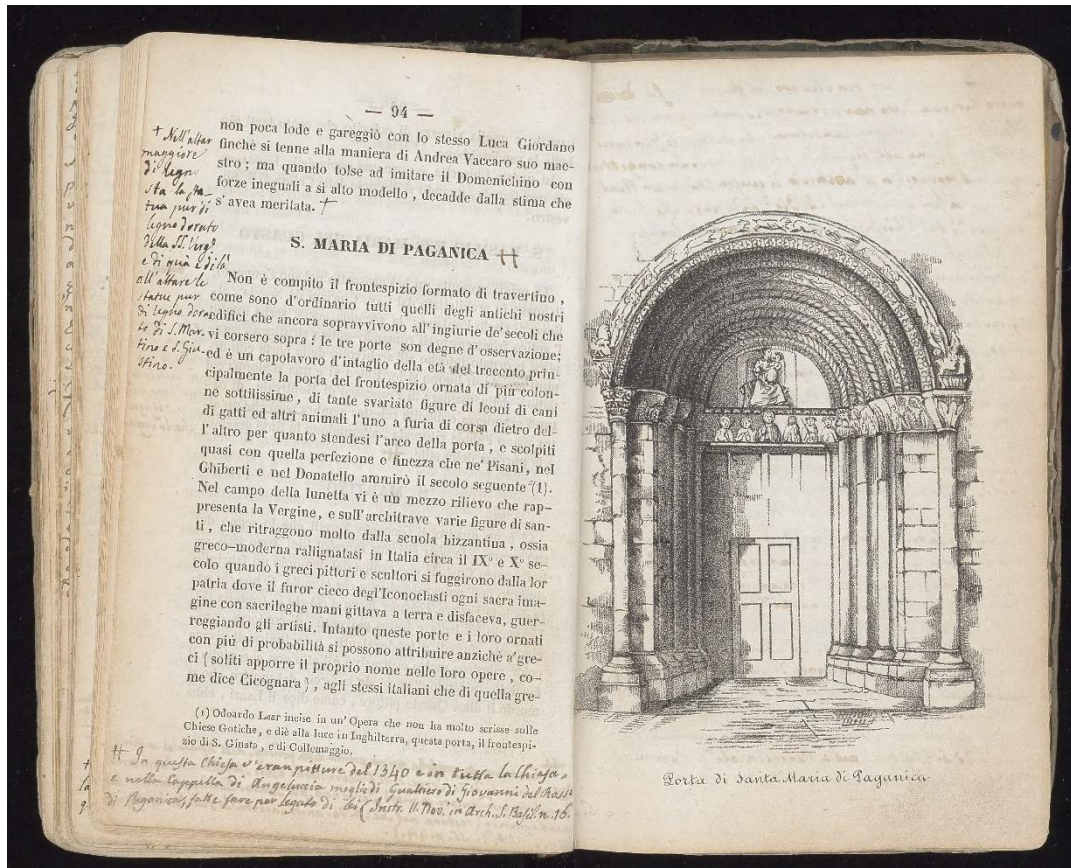 — 94 —
non poca lode e gareggiò con lo stesso Luca Giordano
finchè si tenne alla maniera di Andrea Vaccaro suo mae-
stro ; ma quando tolse ad imitare il Domenichino con
forze ineguali a si alto modello , decadde dalla stima che
s' avea meritata. +
+ Nell'altar
maggiore
di legno
sta la sta-
tua pur di
legno dorato
della SS. Verg.
e di quà e di là
all'altare le
statue pur
di legno dora-
te di S. Mar-
tino e S. Giu-
stino.
S. MARIA DI PAGANICA ++
Non è compito il frontespizio formato di travertino ,
come sono d'ordinario tutti quelli degli antichi nostri
edifici che ancora sopravvivono all'ingiurie de'secoli che
vi corsero sopra : le tre porte son degne d'osservazione;
ed è un capolavoro d'intaglio della età del trecento prin-
cipalmente la porta del frontespizio ornata di più colon-
ne sottilissime , di tante svariate figure di leoni di cani
di gatti ed altri animali l'uno a furia di corsa dietro del-
l'altro per quanto stendesi l'arco della porta , e scolpiti
quasi con quella perfezione e finezza che ne' Pisani, nel
Ghiberti e nel Donatello ammirò il secolo seguente (1).
Nel campo della lunetta vi è un mezzo rilievo che rap-
presenta la Vergine, e sull'architrave varie figure di san-
ti , che ritraggono molto dalla scuola bizzantina , ossia
greco-moderna rallignatasi in Italia circa il IX° e X° se-
colo quando i greci pittori e scultori si fuggirono dalla lor
patria dove il furor cieco degl'Iconoclasti ogni sacra ima-
gine con sacrileghe mani gittava a terra e disfaceva, guer-
reggiando gli artisti. Intanto queste porte e i loro ornati
con più di probabilità si possono attribuire anzichè a'gre-
ci ( soliti apporre il proprio nome nelle loro opere , co-
me dice Cicognara ) , agli stessi italiani che di quella gre-
(1) Odoardo Lear incise in un' Opera che non ha molto scrisse sulle
Chiese Gotiche , e diè alla luce in Inghilterra, questa porta, il frontespi-
zio di S. Giusta , e di Collemaggio.
++ In questa Chiesa v'eran pitture del 1340 e in tutta la Chiesa
e nella Cappella di Angeluccia moglie di Gualtiero di Giovanni del Rosso
di Paganica, fatte fare per legato di lei ( Instr. 11. Nov. in Arch. S. Basil. n. 16.
Porta di Santa Maria di Paganica